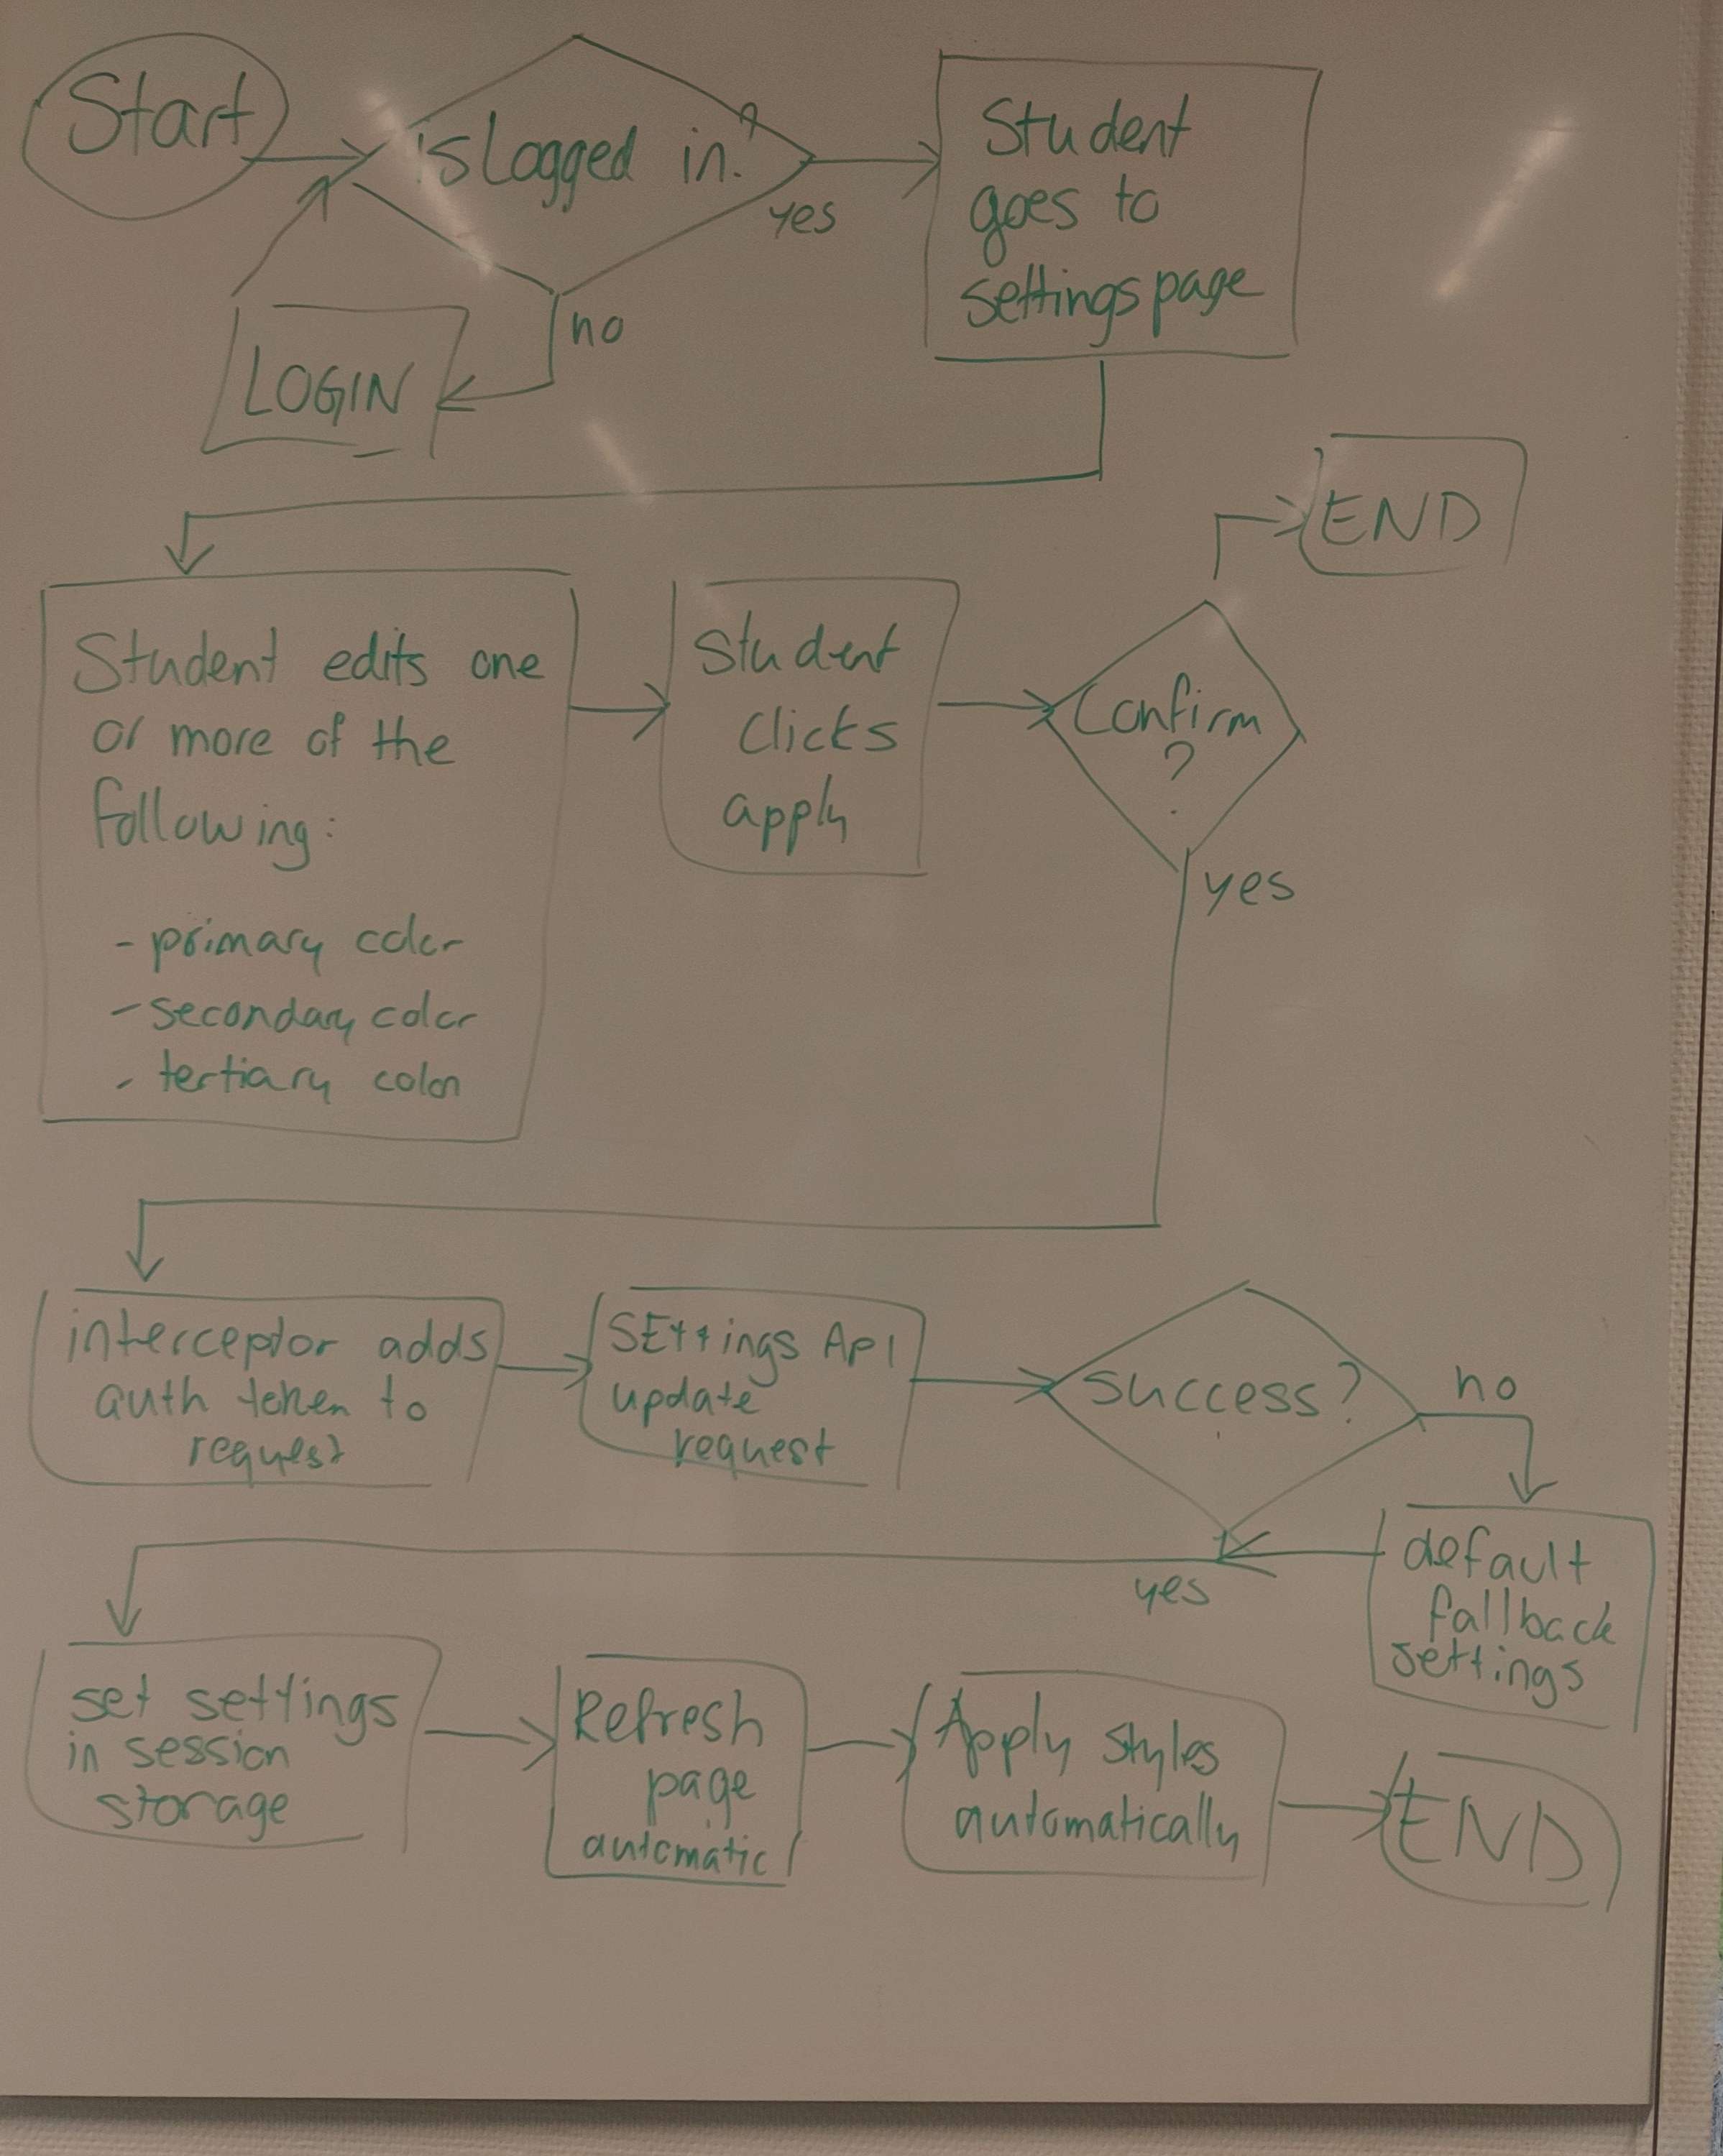 Start
is Logged in?
yes
Student
goes to
settings page
no
LOGIN
END
Student edits one
or more of the
following:
- primary color
- secondary color
- tertiary color
Student
clicks
apply
Confirm
?
yes
interceptor adds
auth token to
request
SEttings API
update
request
success?
no
yes
default
fallback
settings
set settings
in session
storage
Refresh
page
automatic
Apply styles
automatically
END